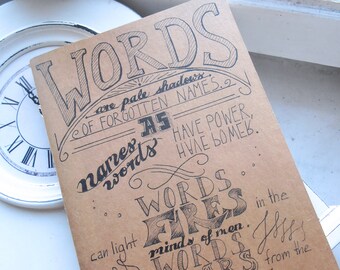 WORDS
are pale shadows
OF FORGOTTEN NAMES.
AS
names HAVE POWER,
words HAVE POWER.
WORDS
can light FIRES in the
minds of men.
WORDS
from the